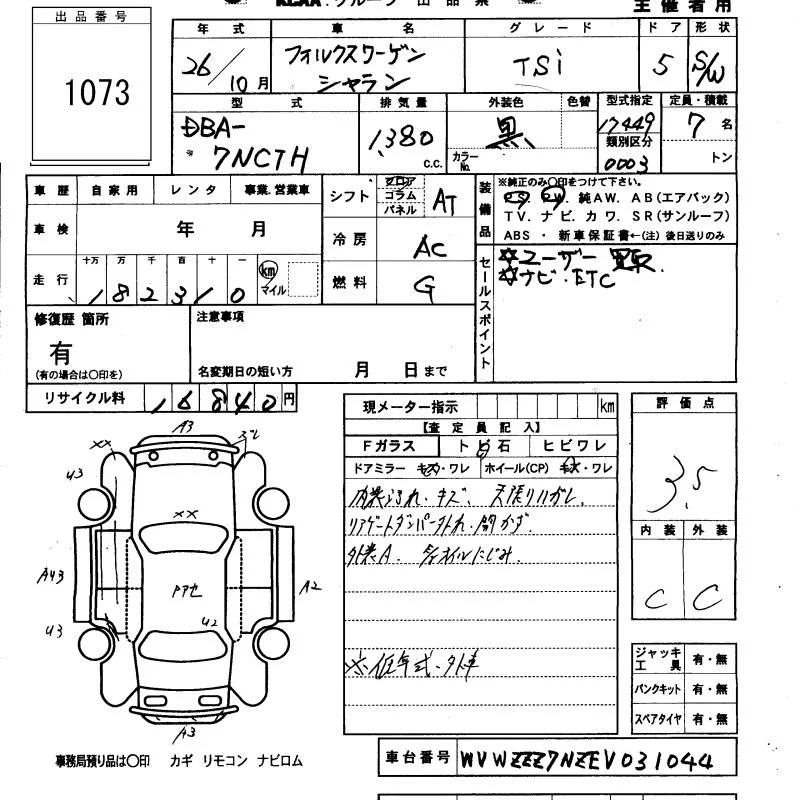 出品番号
1073
主催者用
年式 車名 グレード ドア 形状
26/10月 フォルクスワーゲン シャラン TSi 5 S/W
型式 排気量 外装色 色替 型式指定 定員・積載
DBA-7NCTH 1,380 c.c. 黒 カラーNo. 17449 7名
類別区分
0003 トン
車歴 自家用 レンタ 事業.営業車
車検 年 月
走行 十万 万 千 百 十 一 km マイル
182310
シフト フロア コラム パネル AT
冷房 AC
燃料 G
装備品
※純正のみ〇印をつけて下さい。
PS. PW. 純AW. AB(エアバック)
TV. ナビ. カワ. SR(サンルーフ)
ABS ・ 新車保証書←(注) 後日送りのみ
セールスポイント
☆ユーザー買取.
☆ナビ・ETC
修復歴 箇所
有
(有の場合は〇印を)
注意事項
名変期日の短い方 月 日まで
リサイクル料 16840円
現メーター指示 km
【査定員記入】
Fガラス トビ石 ヒビワレ
ドアミラー キズ・ワレ ホイール(CP) キズ・ワレ
内装よごれ・キズ、天張りハガレ.
リアゲートダンパー外れ・開かず.
外装A.
オイルにじみ.
※低年式・外車
評価点
3.5
内装 外装
C C
ジャッキ工具 有・無
パンクキット 有・無
スペアタイヤ 有・無
A3
ズレ
××
U3
××
A43
アアセ
A2
U2
U3
A3
事務局預り品は〇印 カギ リモコン ナビロム
車台番号 WVWZZZ7NZEV031044